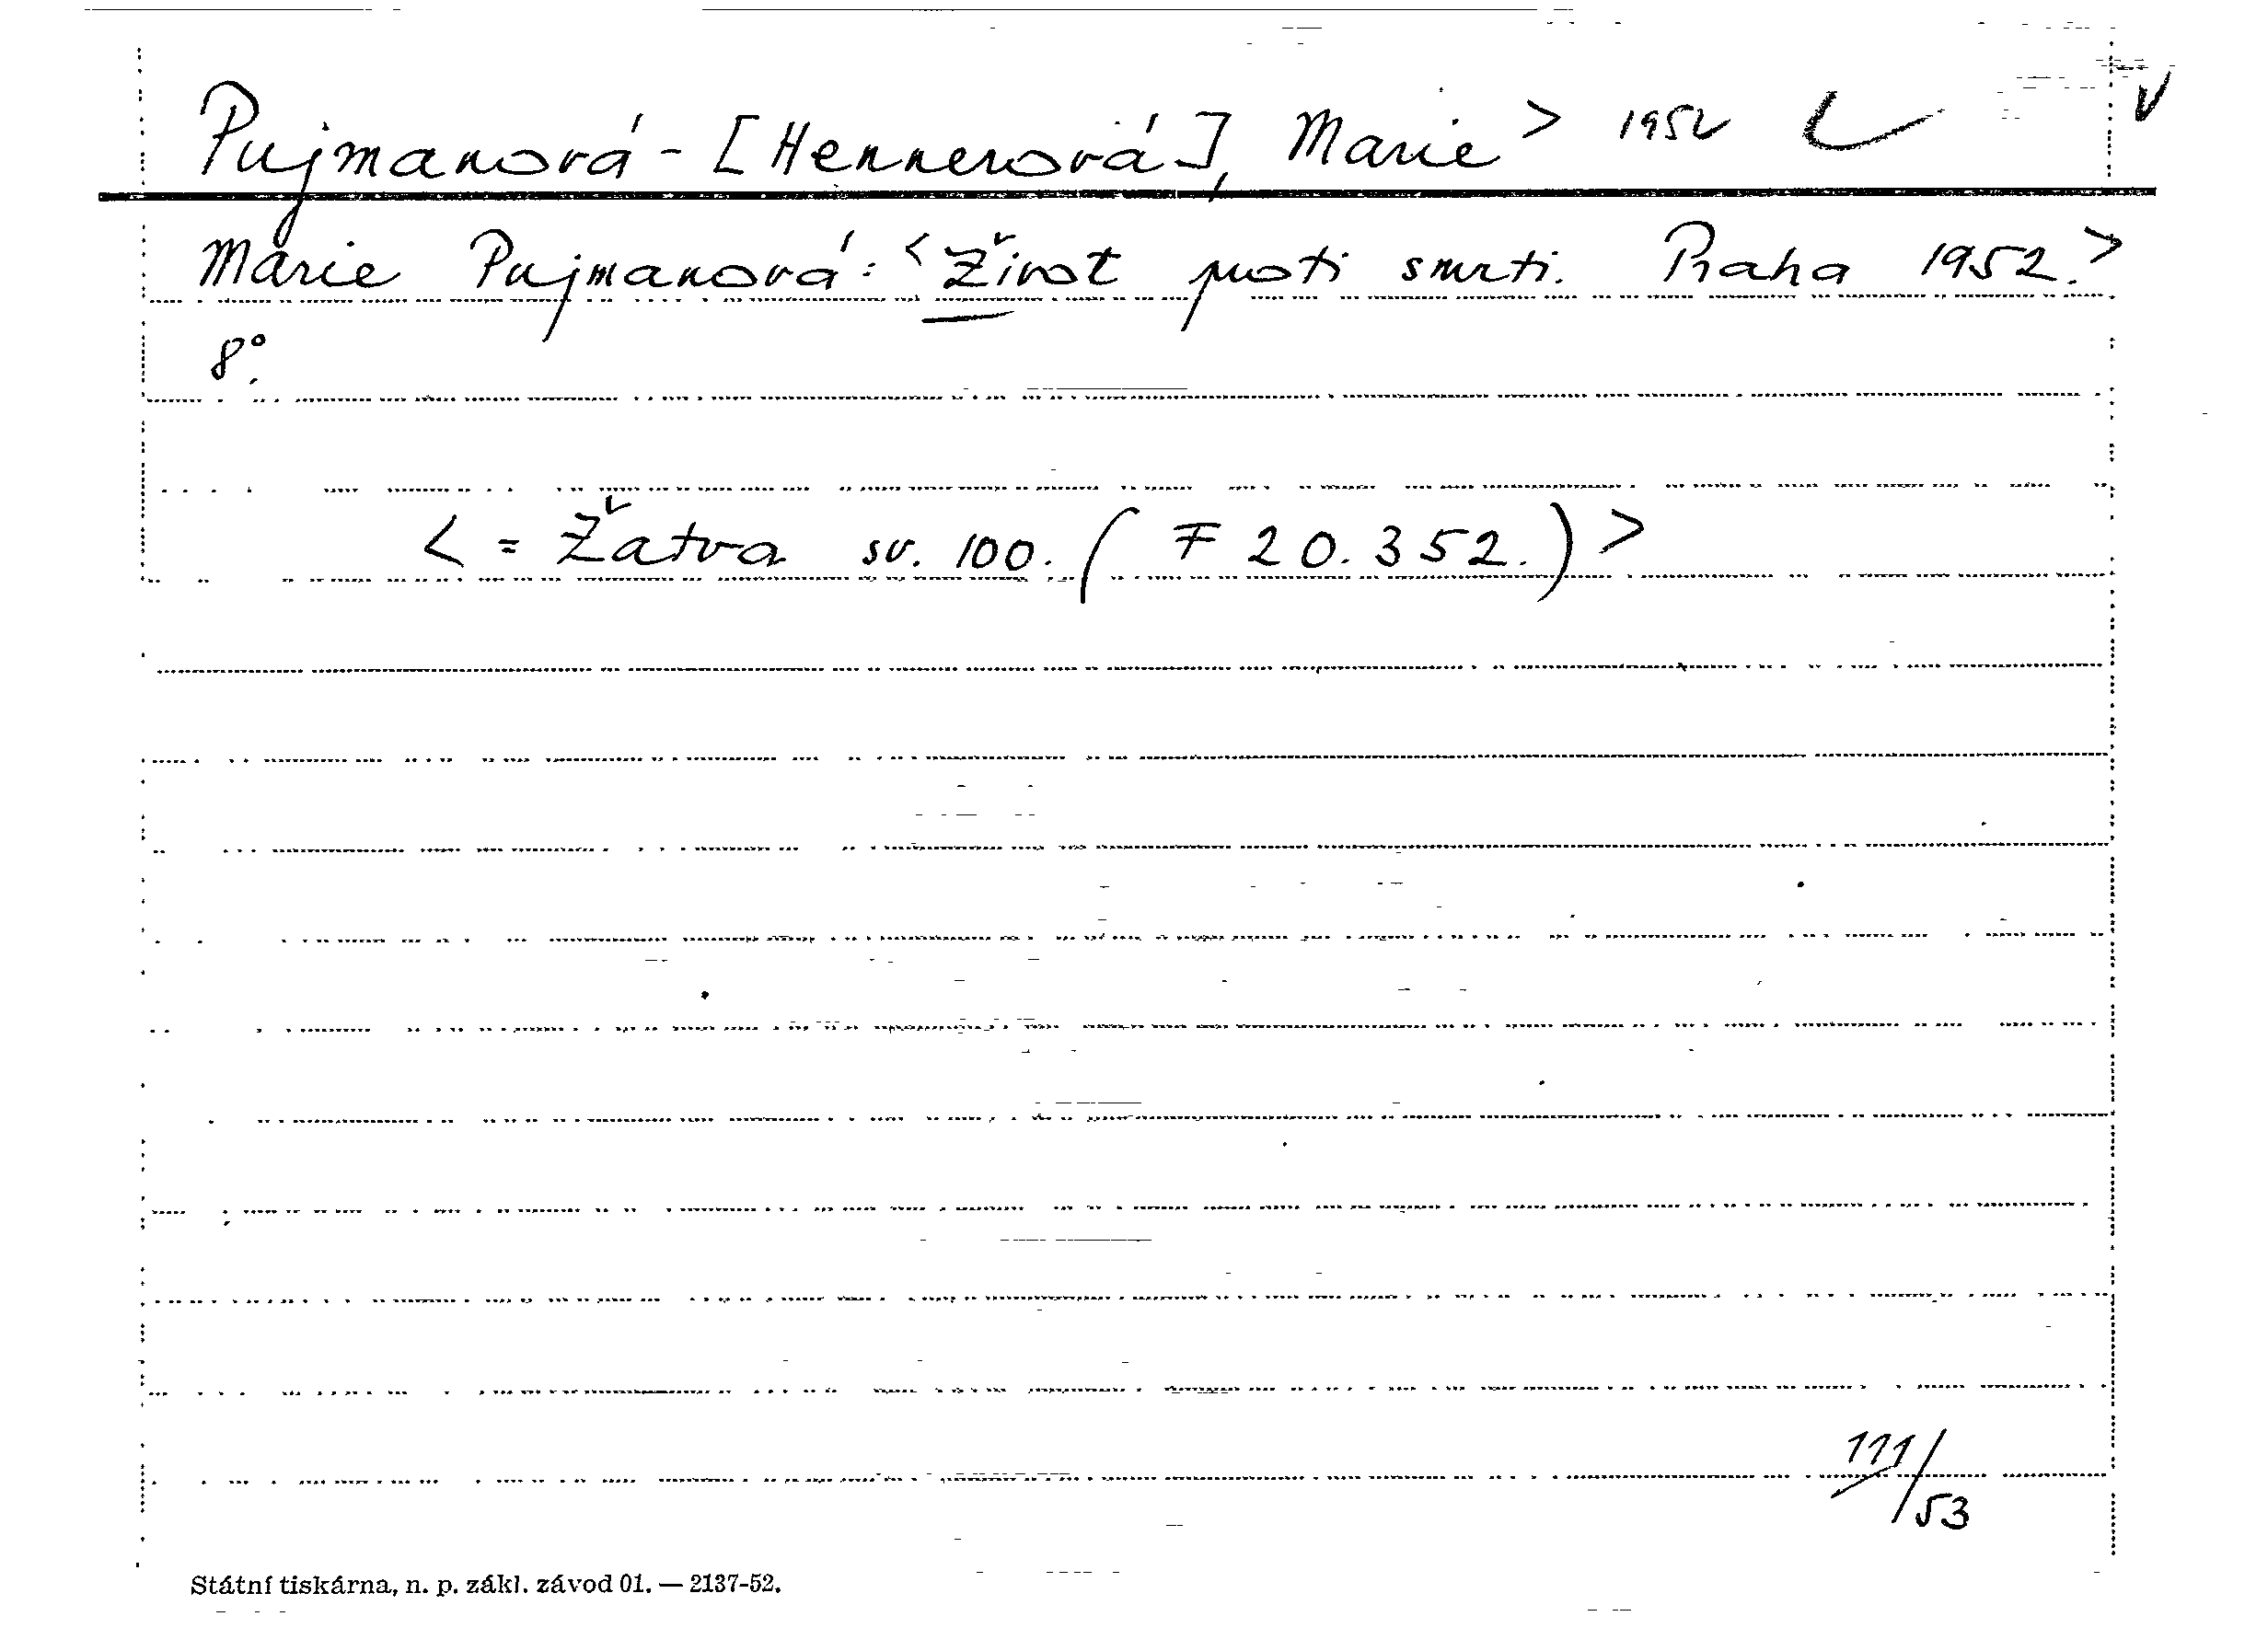 Pujmanová-[Hennerová], Marie > 1952 V
Marie Pujmanová: <Život proti smrti. Praha 1952.>
8°.
< = Žatva sv. 100. (F 20.352.) >
111/53
Státní tiskárna, n. p. zákl. závod 01. — 2137-52.